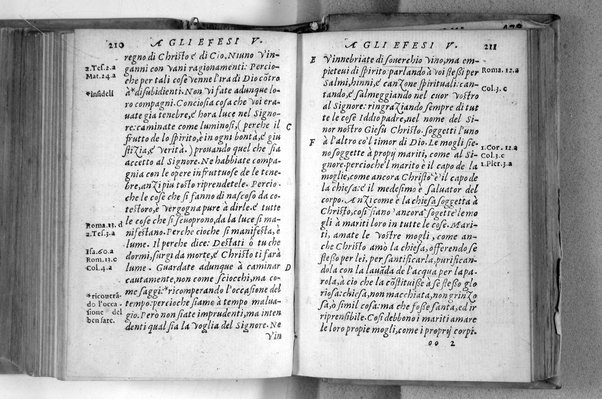 210
A GLI EFESI V.
regno di Christo e di Dio. Niuno v'in
ganni con vani ragionamenti: Percio-
che per tali cose venne l'ira di Dio cōtro
à *disubidienti. Non vi fate adunque lo-
ro compagni. Conciosia cosa che voi era-
uate gia tenebre, & hora luce nel Signo-
re: caminate come luminosi, (perche il
frutto de lo spirito, è in ogni bontà, e giu
stizia, e verità) prouando quel che sia
accetto al Signore. Ne habbiate compa-
gnia con l'opere infruttuose de le tene-
bre, anzi piu tosto riprendetele. Percio-
che le cose che si fanno di nascoso da co-
storo, è vergogna pure à dirle. & tutte
le cose che si scuoprono, da la luce si ma-
nifestano. Perche ciochè si manifesta, è
lume. Il perche dice: Destati ò tu che
dormi, surgi da morte, & Christo ti farà
lume. Guardate adunque à caminar
cautamente, non come sciocchi, ma co-
me saggi: *ricomperando l'occasione del
tempo: percioche siamo à tempo malua-
gio. Però non siate imprudenti, ma inten
denti qual sia la voglia del Signore. Ne
Vin
2. Tes. 2. a
Mat. 24. a
*infideli
C
Roma. 13. d
2. Tes. 3. a
Isa. 60. a
Rom. 13. c
Col. 4. a
D
*ricouerā-
do l'occa-
sione del
ben fare.
A GLI EFESI V.
211
E
V'innebriate di souerchio vino, ma em
pieteui di spirito: parlando à voi stessi per
Salmi, hinni, & canzone spirituali: can-
tando, e salmeggiando nel cuor vostro
al Signore: ringraziando sempre di tut
te le cose Iddio padre, nel nome del Si-
gnor nostro Giesu Christo. soggetti l'uno
F
à l'altro co'l timor di Dio. Le mogli sie-
no soggette à proprij mariti, come al Si-
gnore. percioche'l marito è il capo de la
moglie, come ancora Christo è il capo de
la chiesa: & il medesimo è saluator del
corpo. Anzi come è la chiesa soggetta à
Christo, cosi siano ancora soggette le mo
gli à mariti loro in tutte le cose. Mari-
ti, amate le vostre mogli, come an-
che Christo amò la chiesa, offerendo se
stesso per lei, per santificarla, purifican-
dola con la lauāda de l'acqua per la pa-
rola, à ciò che la cōstituisse à se stesso glo
riosa: chiesa, non macchiata, non grinzo
sa, ò simil cosa: ma che fosse santa, ed ir
riprensibile. Cosi debbono i mariti amare
le loro proprie mogli, come i proprij corpi.
oo 2
Roma. 12. a
Col. 3. c
1. Cor. 11. a
Col. 3. c
1. Piet. 3. a